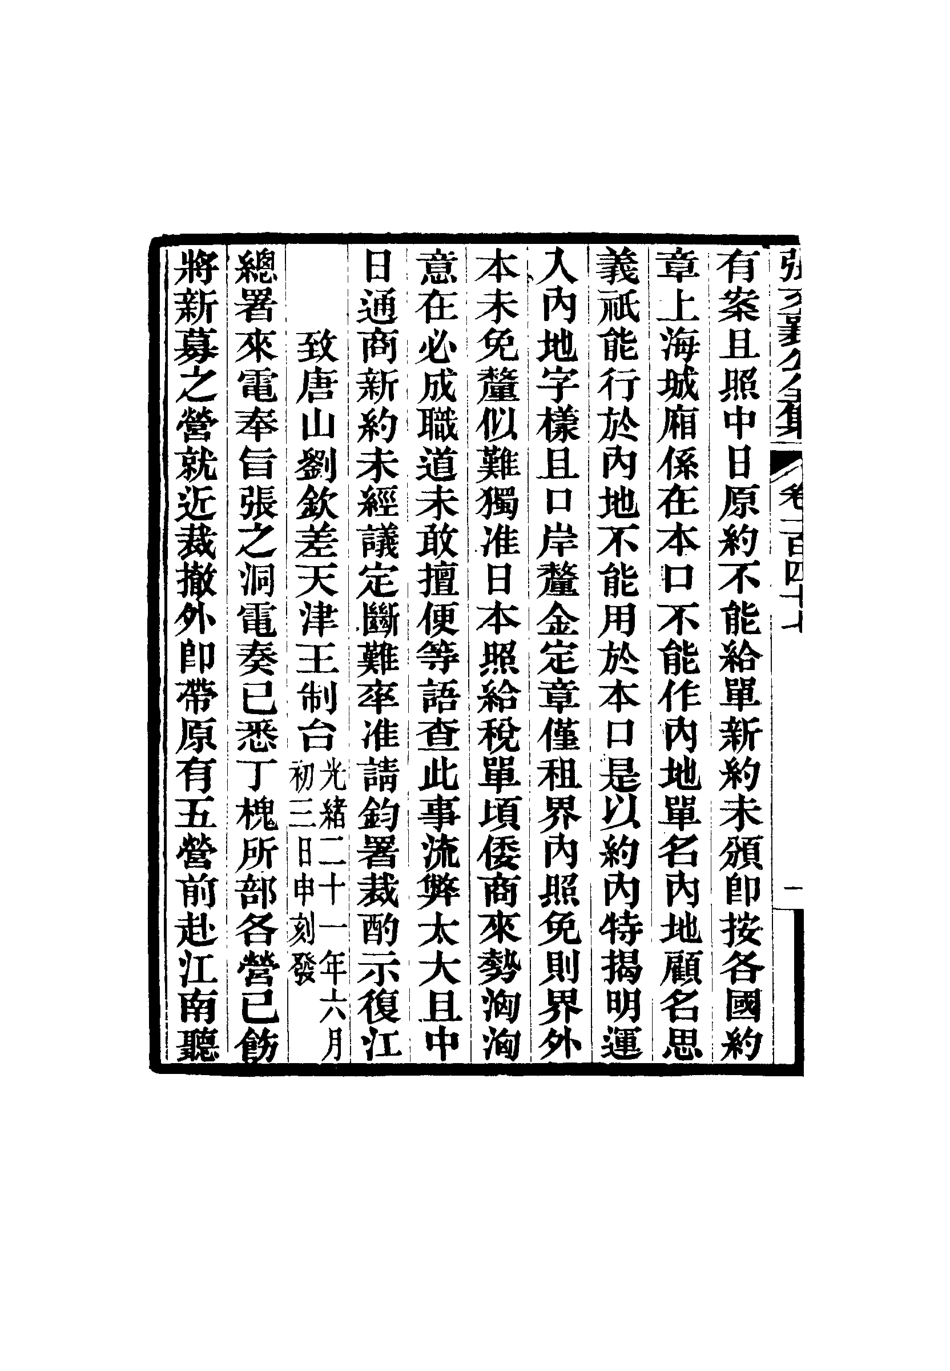 張文襄公全集 卷一百四十七 一
有案且照中日原約不能給單新約未頒卽按各國約
章上海城廂係在本口不能作內地單名內地顧名思
義祇能行於內地不能用於本口是以約內特揭明運
入內地字樣且口岸釐金定章僅租界內照免則界外
本未免釐似難獨准日本照給稅單頃倭商來勢洶洶
意在必成職道未敢擅便等語查此事流弊太大且中
日通商新約未經議定斷難率准請鈞署裁酌示復江
致唐山劉欽差天津王制台光緒二十一年六月
初三日申刻發
總署來電奉旨張之洞電奏已悉丁槐所部各營已飭
將新募之營就近裁撤外卽帶原有五營前赴江南聽